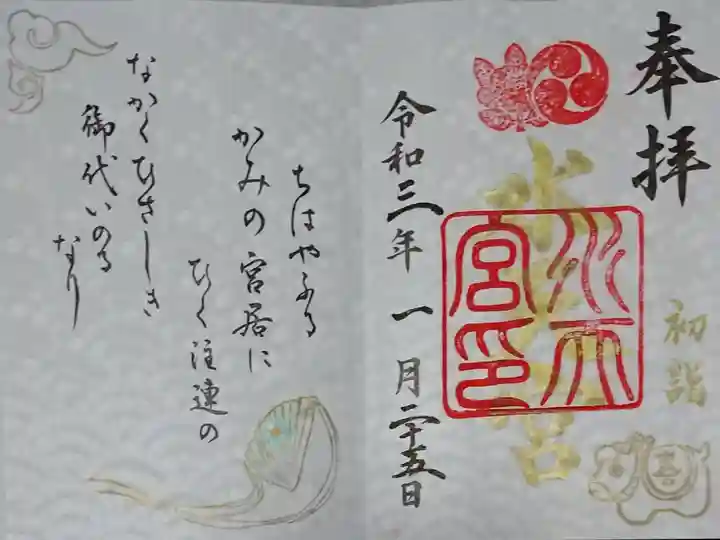 奉拝
初詣
水天宮
水天宮印
令和三年 一月二十五日
ちはやふる
かみの宮居に
ひく注連の
なかくひさしき
御代いのる
なり